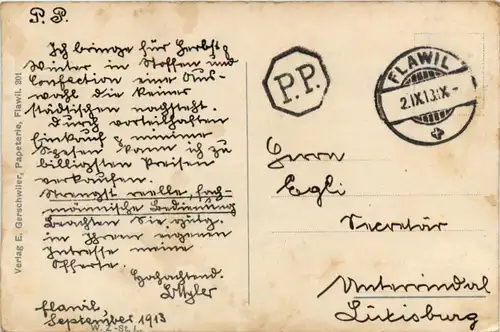 P. P.
Ich bringe für Herbst &
Winter in Stoffen und
Confection eine Aus-
wahl die keiner
städtischen nachsteht.
Durch vorteilhaften
Einkauf & minime
Spesen kann ich zu
billigsten Preisen
verkaufen.
Strengst reelle, fach-
männische Bedienung
Beachten Sie gütg.
in Ihrem eigenen
Interesse meine
Offerte.
Hochachtend.
Flawil
September 1913
W. Z.-St. I.
Verlag E. Gerschwiler, Papeterie, Flawil. 201
P.P.
FLAWIL
2.IX.13.IX-
Herrn
Egli
Secretär
Unterrindal
Lütisburg